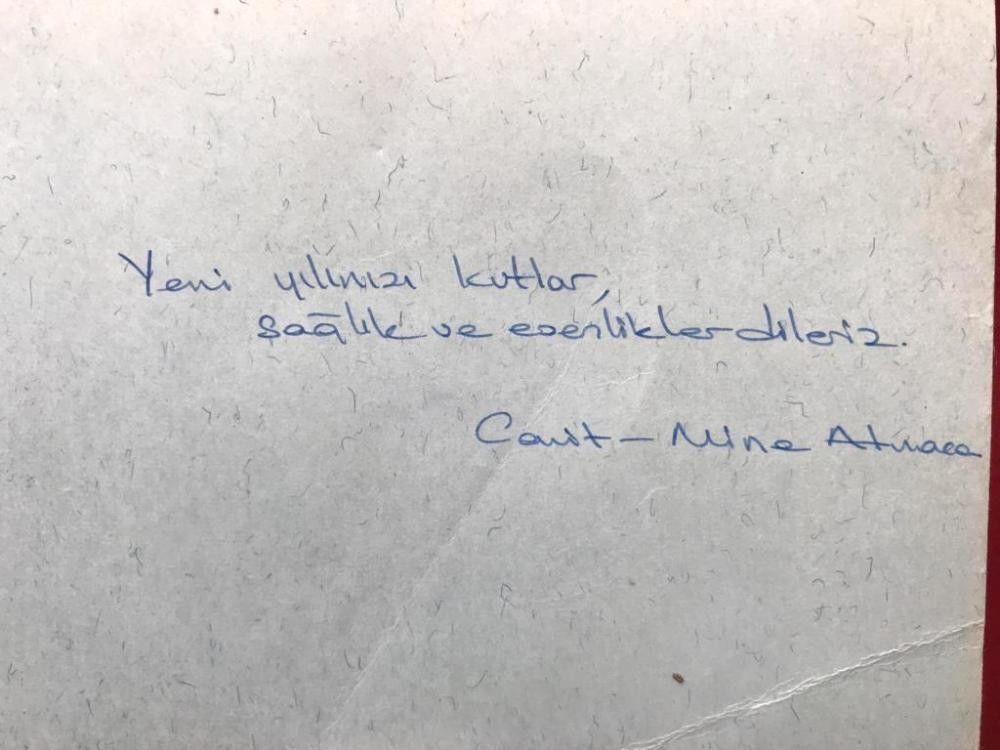 Yeni yılınızı kutlar,
sağlık ve esenlikler dileriz.
Cavit - Mine Atmaca